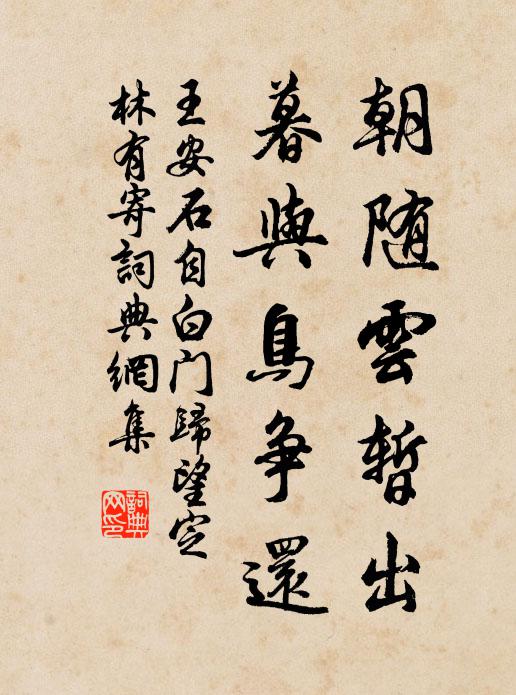 朝随雲暫出
暮與鳥争還
王安石自白门歸望定
林有寄詞典網集
詞典网印